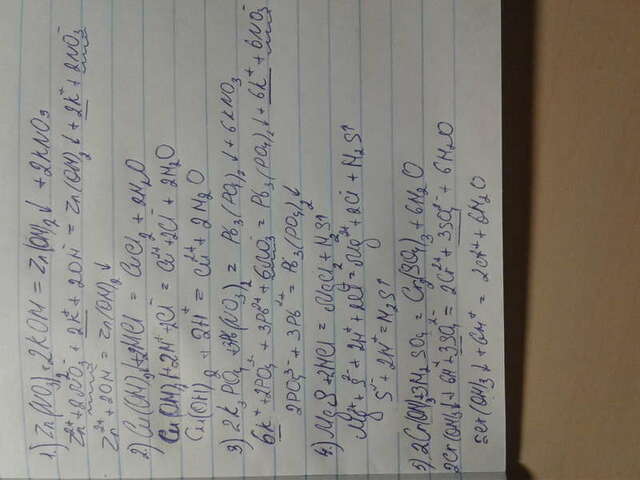 1) Zn(NO3)2+2KOH = Zn(OH)2↓ + 2KNO3
Zn2+ + 2NO3- + 2K+ + 2OH- = Zn(OH)2↓ + 2K+ + 2NO3-
Zn2+ + 2OH = Zn(OH)2↓
2) Cu(OH)2+2HCl = CuCl2 + 2H2O
Cu(OH)2+2H+ +2Cl- = Cu2+ +2Cl- + 2H2O
Cu(OH)2 + 2H+ = Cu2+ + 2H2O
3) 2K3PO4 +3Pb(NO3)2 = Pb3(PO4)2↓ + 6KNO3
6K+ +2PO4 3- +3Pb2+ +6NO3- = Pb3(PO4)2↓ + 6K+ + 6NO3-
2PO4 3- +3Pb2+ = Pb3(PO4)2↓
4) MgS+2HCl = MgCl2+H2S↑
Mg2+ + S2- + 2H+ + 2Cl- = Mg2+ +2Cl- + H2S↑
S2- + 2H+ = H2S↑
5) 2Cr(OH)3+3H2SO4 = Cr2(SO4)3 + 6H2O
2Cr(OH)3↓+6H+ +3SO4 2- = 2Cr3+ +3SO4 2- + 6H2O
2Cr(OH)3↓+6H+ = 2Cr3+ +6H2O